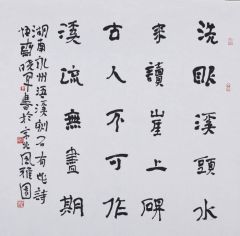 洗眼溪頭水
來讀崖上碑
古人不可作
溪流無盡期
湖南永州浯溪刻石有此詩
書於京北風雅園